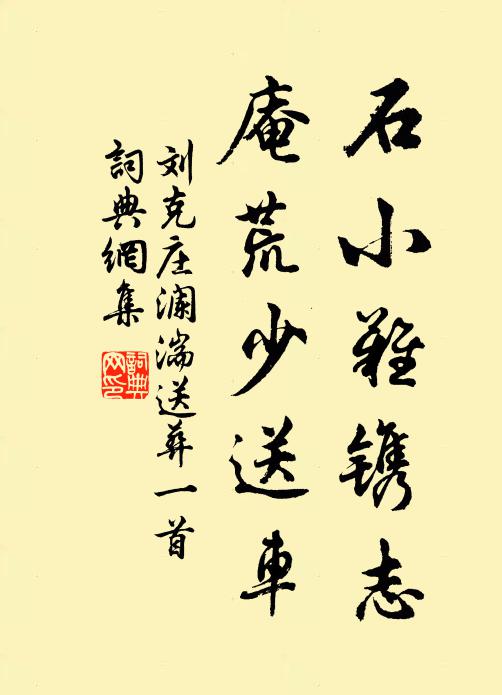 石小难镌志
庵荒少送車
刘克庄澜湍送葬一首
詞典網集
詞典網印